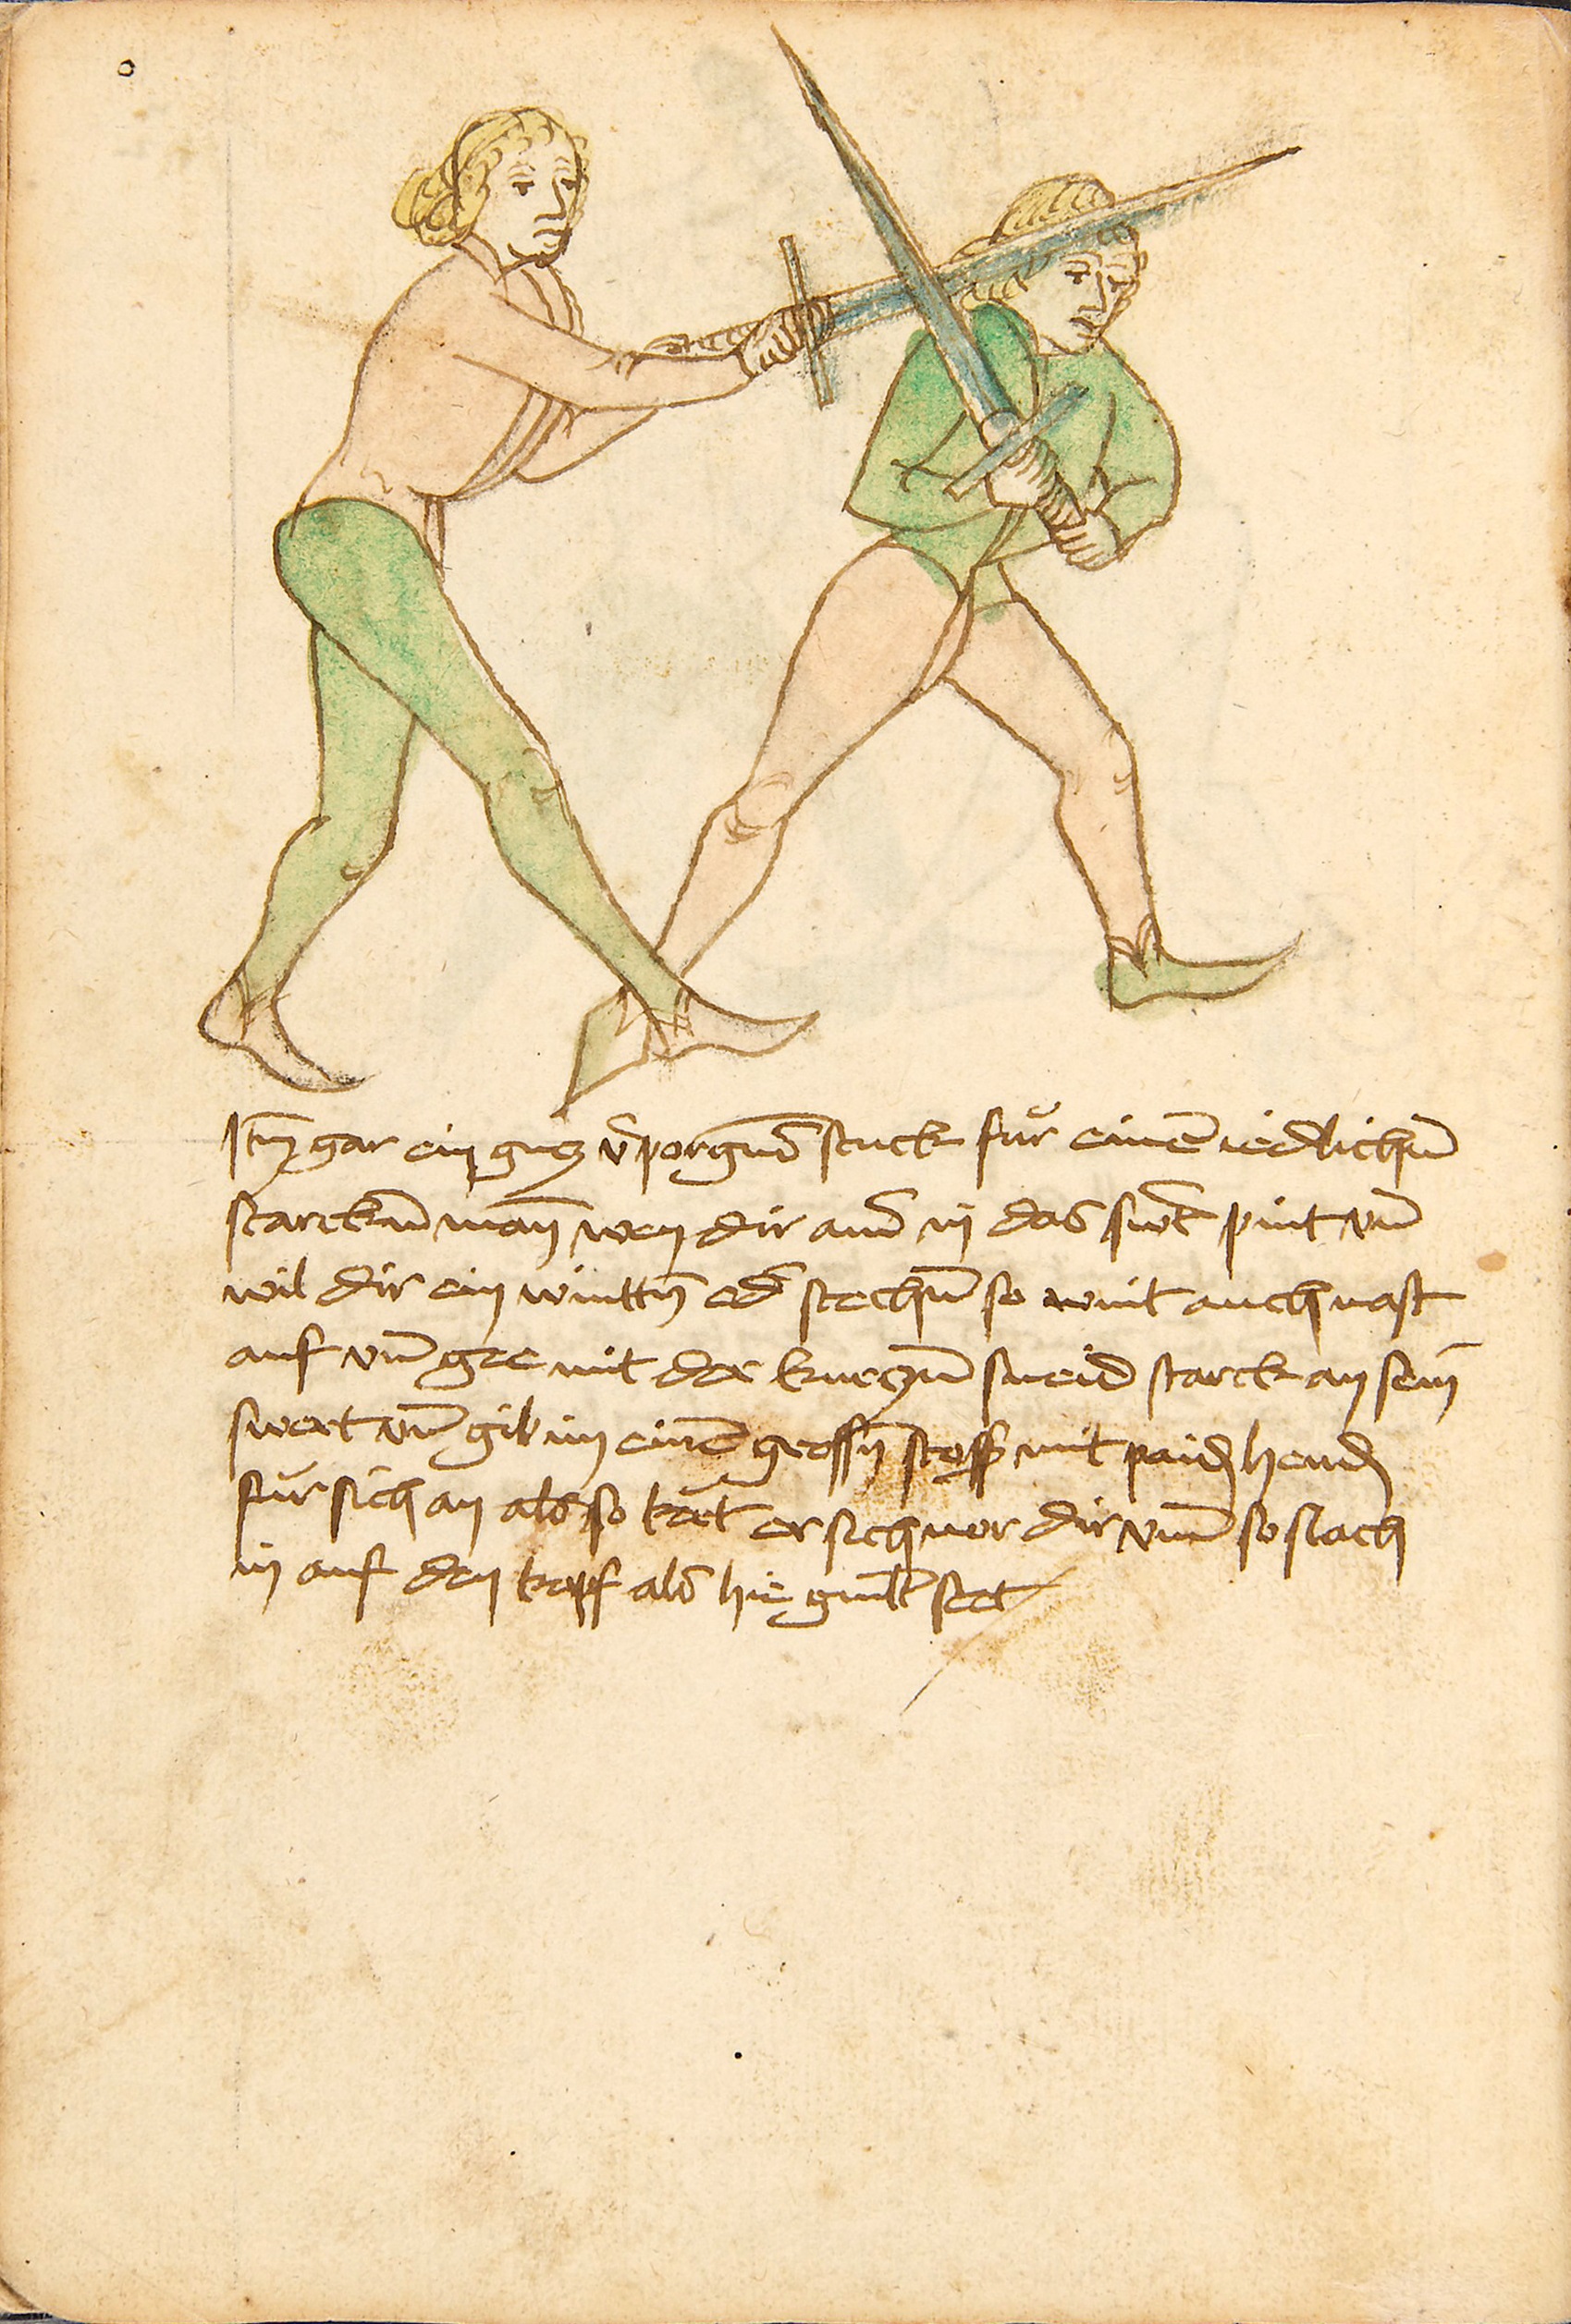 Itm̄ gar ein gucz v̄porgnd̄ stuck für einē iedlichn̄
starckn̄ man̄ wen dir ain̄ in das swt̄ pint vn̄
wil dir ein wintt̄n od̄ stechn̄ so wint auch vast
auf vn̄ gee mit der kurczn̄ sneid starck an sein̄
swert vn̄ gib im einē grossn̄ stoss mit paidn̄ hendn̄
für sich an also so kert er sich vor dir vm̄ so slach
in auf den kopf als hie gmlt̄ stet